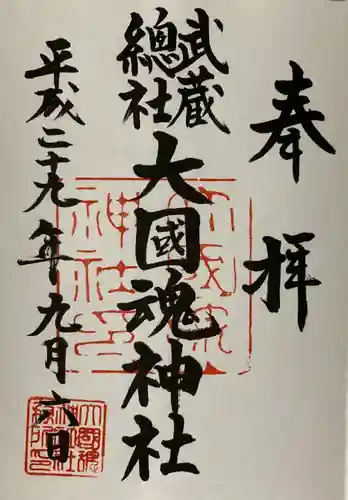 奉拝
武蔵
總社
大國魂神社
平成二十九年九月六日